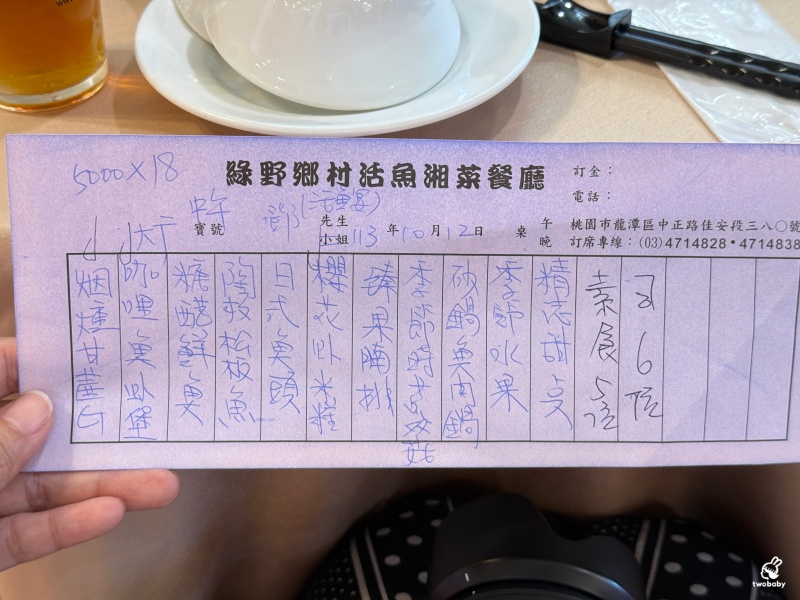 5000×18
綠野鄉村活魚湘菜餐廳
訂金：
電話：
中午
鄧
寶號
先生
小姐
113年10月12日
桌
午
晚
桃園市龍潭區中正路佳安段三八〇號
訂席專線：(03)4714828•4714838
大廳
烟燻甘蔗G
咖哩魚卟堡
糖醋鮮魚
陶板松板魚
日式魚頭
櫻花卟米糕
臻果腩排
季節時蔬双菇
砂鍋魚肉鍋
季節水果
精忘甜点
素食5位
6位
twobaby